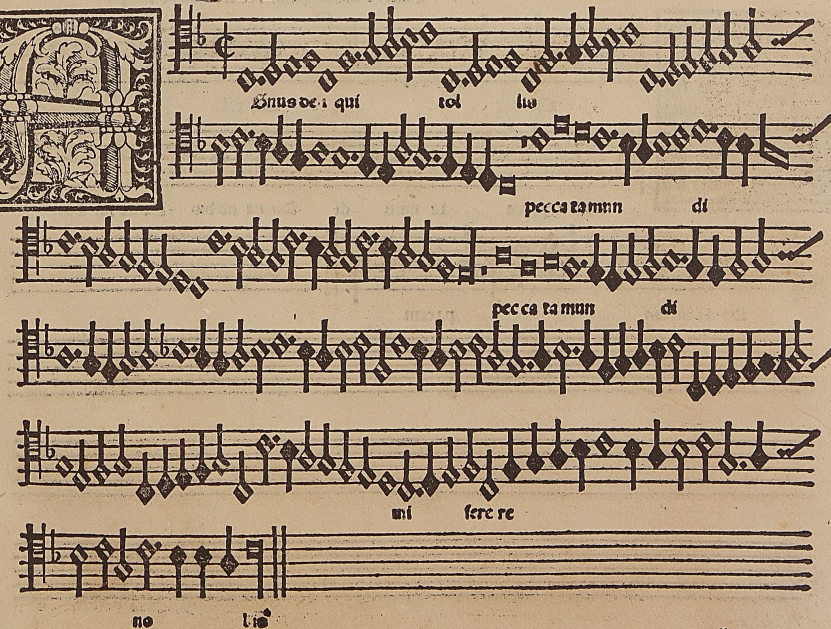 Gnus de i qui tol lis
pecca ta mun di
pec ca ta mun di
mi sere re
no bis